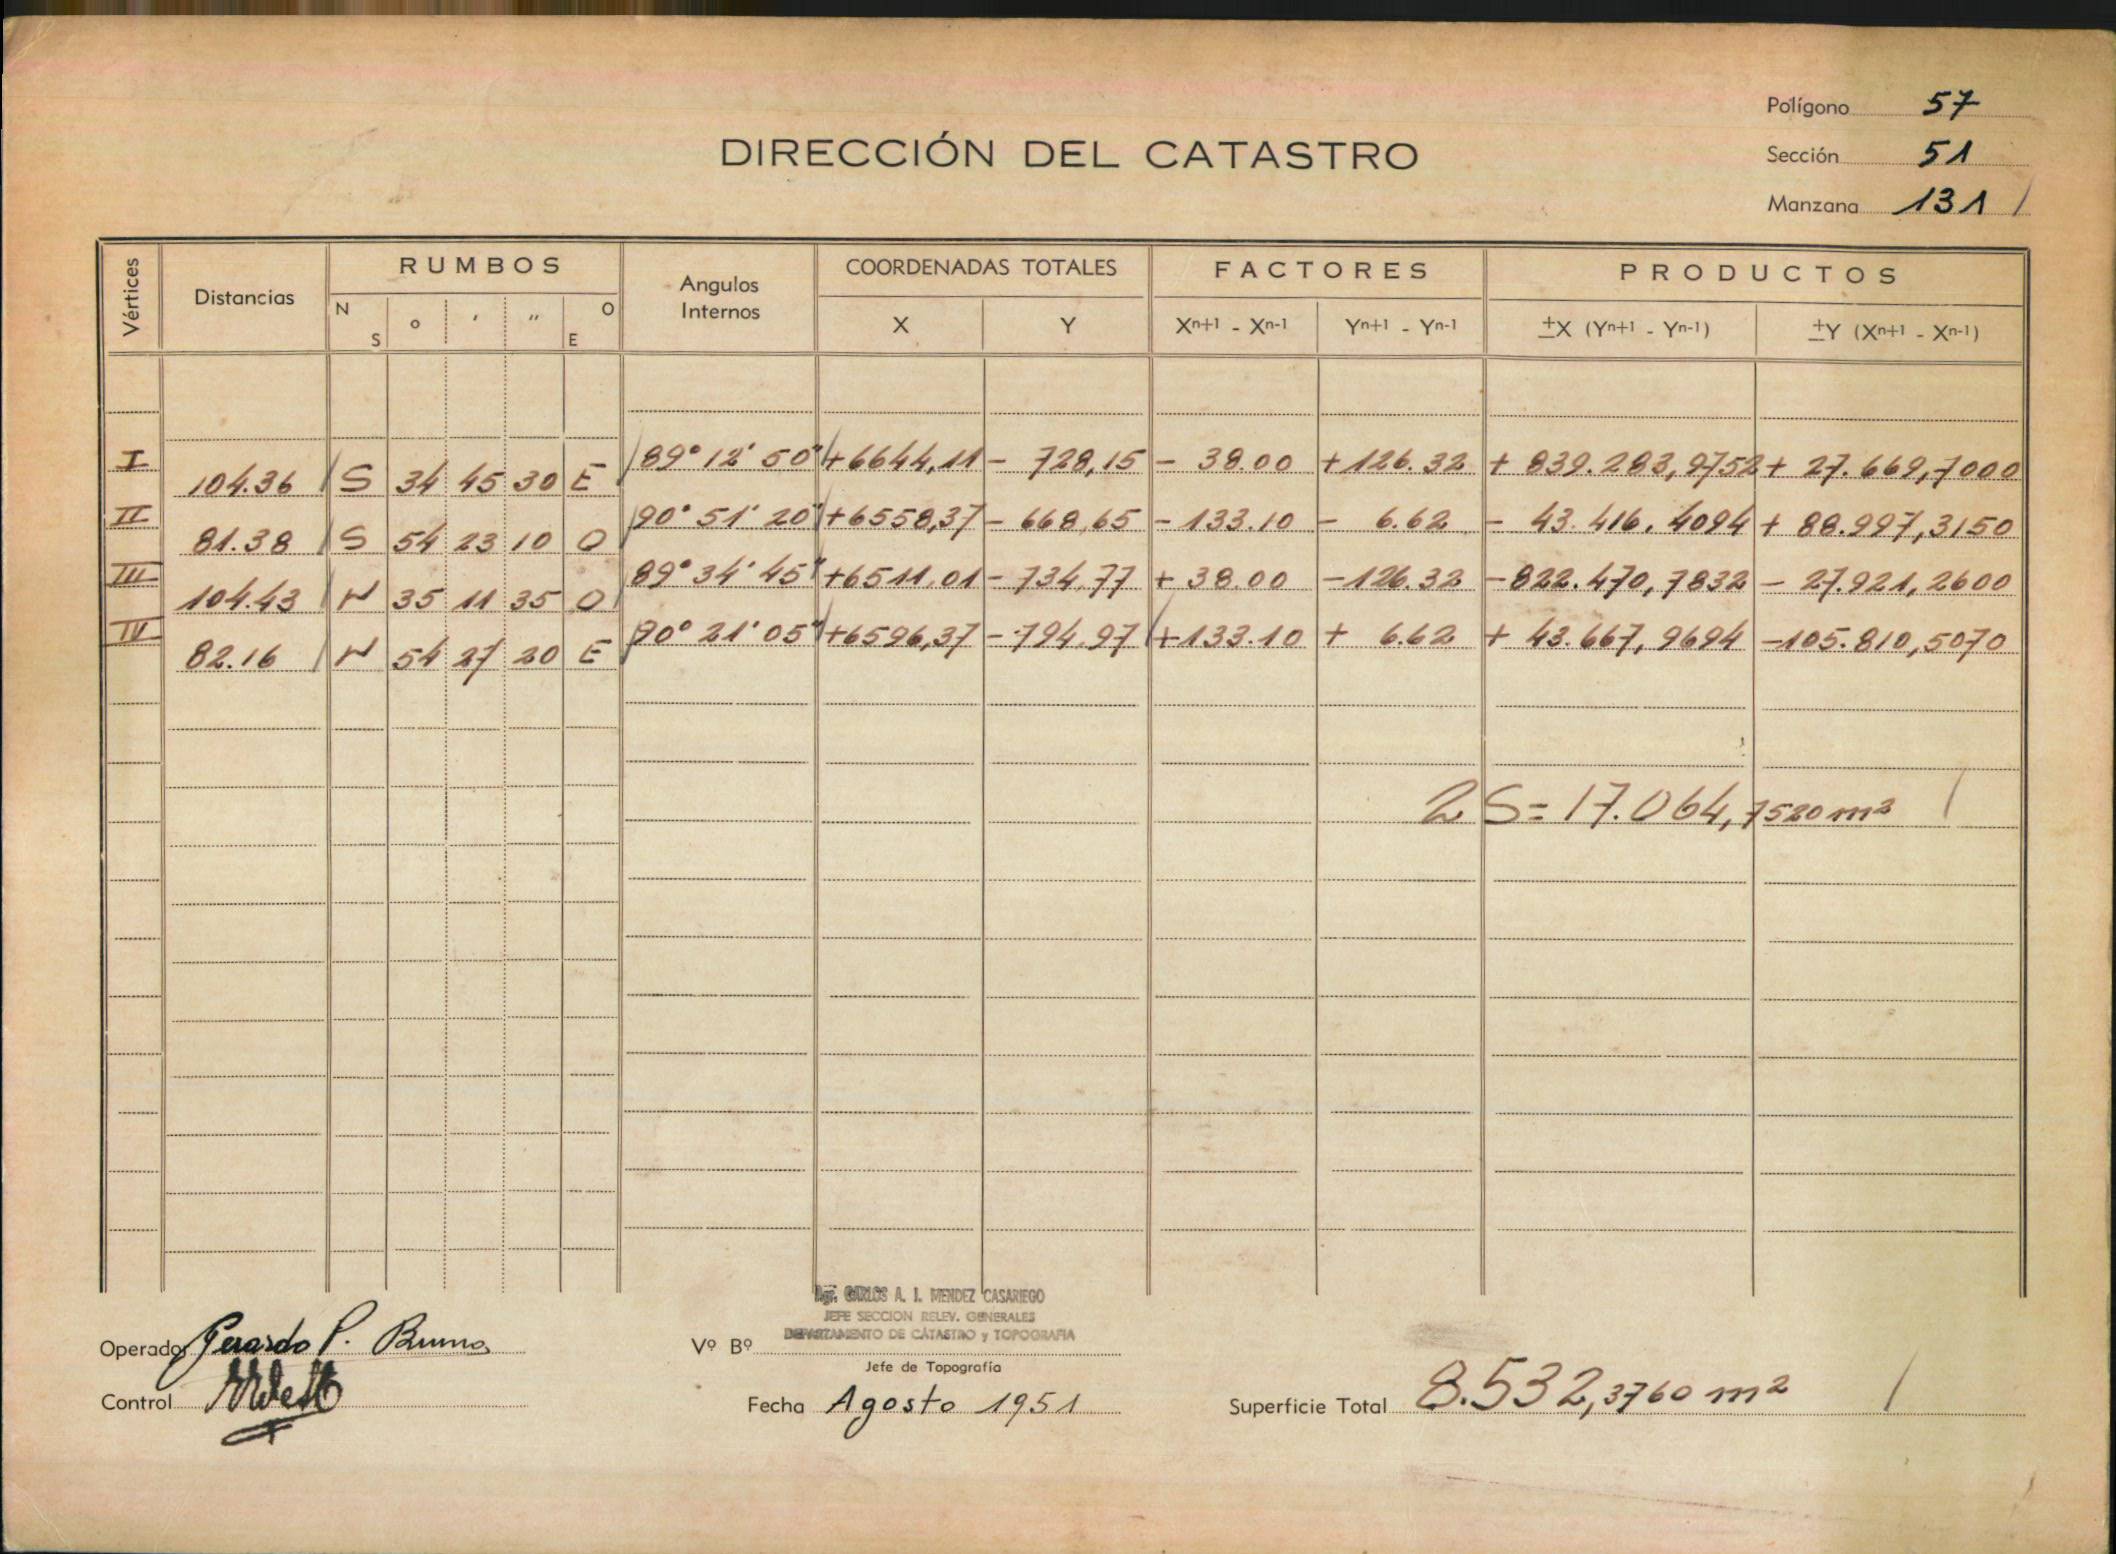 Polígono 57
DIRECCIÓN DEL CATASTRO
Sección 51
Manzana 131 /
Vértices Distancias RUMBOS Angulos Internos COORDENADAS TOTALES FACTORES PRODUCTOS
N S ° ' " O E X Y Xn+1 - Xn-1 Yn+1 - Yn-1 ±X (Yn+1 - Yn-1) ±Y (Xn+1 - Xn-1)
I 89° 12' 50" +6644,11 - 728,15 - 38.00 +126.32 + 839.283,9752 + 27.669,7000
104.36 S 34 45 30 E
II 90° 51' 20" +6558,37 - 668,65 - 133.10 - 6.62 - 43.416,4094 + 88.997,3150
81.38 S 54 23 10 O
III 89° 34' 45" +6511.01 - 734,77 + 38.00 -126.32 -822.470,7832 - 27.921,2600
104.43 N 35 11 35 O
IV 90° 21' 05" +6596,37 - 794,97 +133.10 + 6.62 + 43.667,9694 -105.810,5070
82.16 N 54 27 20 E
2 S = 17.064,7520 m² /
Agr. CARLOS A. I. MENDEZ CASARIEGO
JEFE SECCION RELEV. GENERALES
DEPARTAMENTO DE CATASTRO y TOPOGRAFIA
Operador Gerardo P. Bruno
Vº Bº
Jefe de Topografía
Control
Fecha Agosto 1951
Superficie Total 8.532,3760 m² /